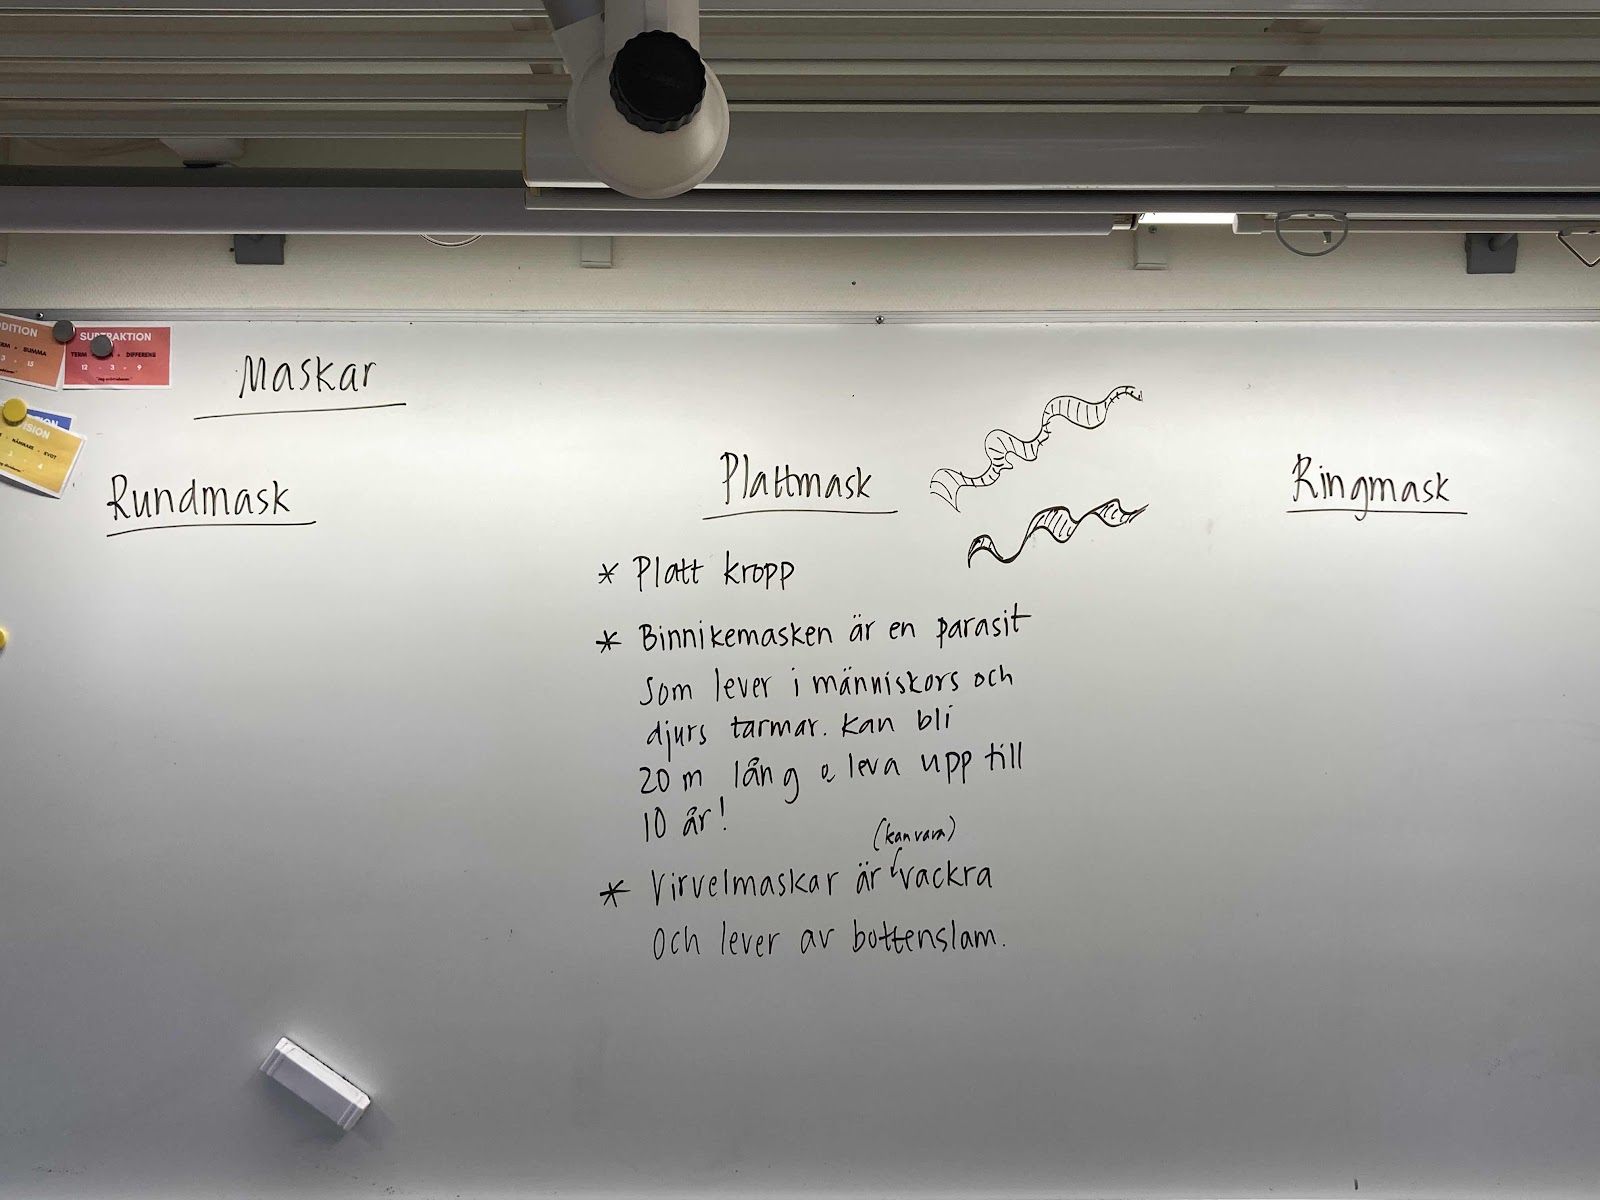 DDITION
SUMMA
3 15
SUBTRAKTION
TERM DIFFERENS
12 - 3 = 9
ISION
NÄMNARE = KVOT
Maskar
Rundmask
Plattmask
* Platt kropp
* Binnikemasken är en parasit
som lever i människors och
djurs tarmar. kan bli
20 m lång o leva upp till
10 år!
(kan vara)
* Virvelmaskar är vackra
och lever av bottenslam.
Ringmask